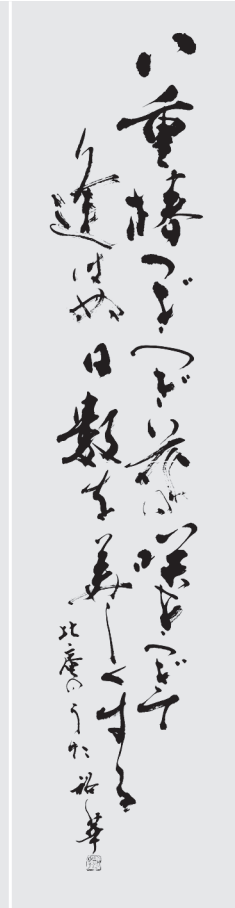 八重椿つぎつぎ花が咲きつぎて
逢はぬ日数を美しくする
比庵のうた 裕華